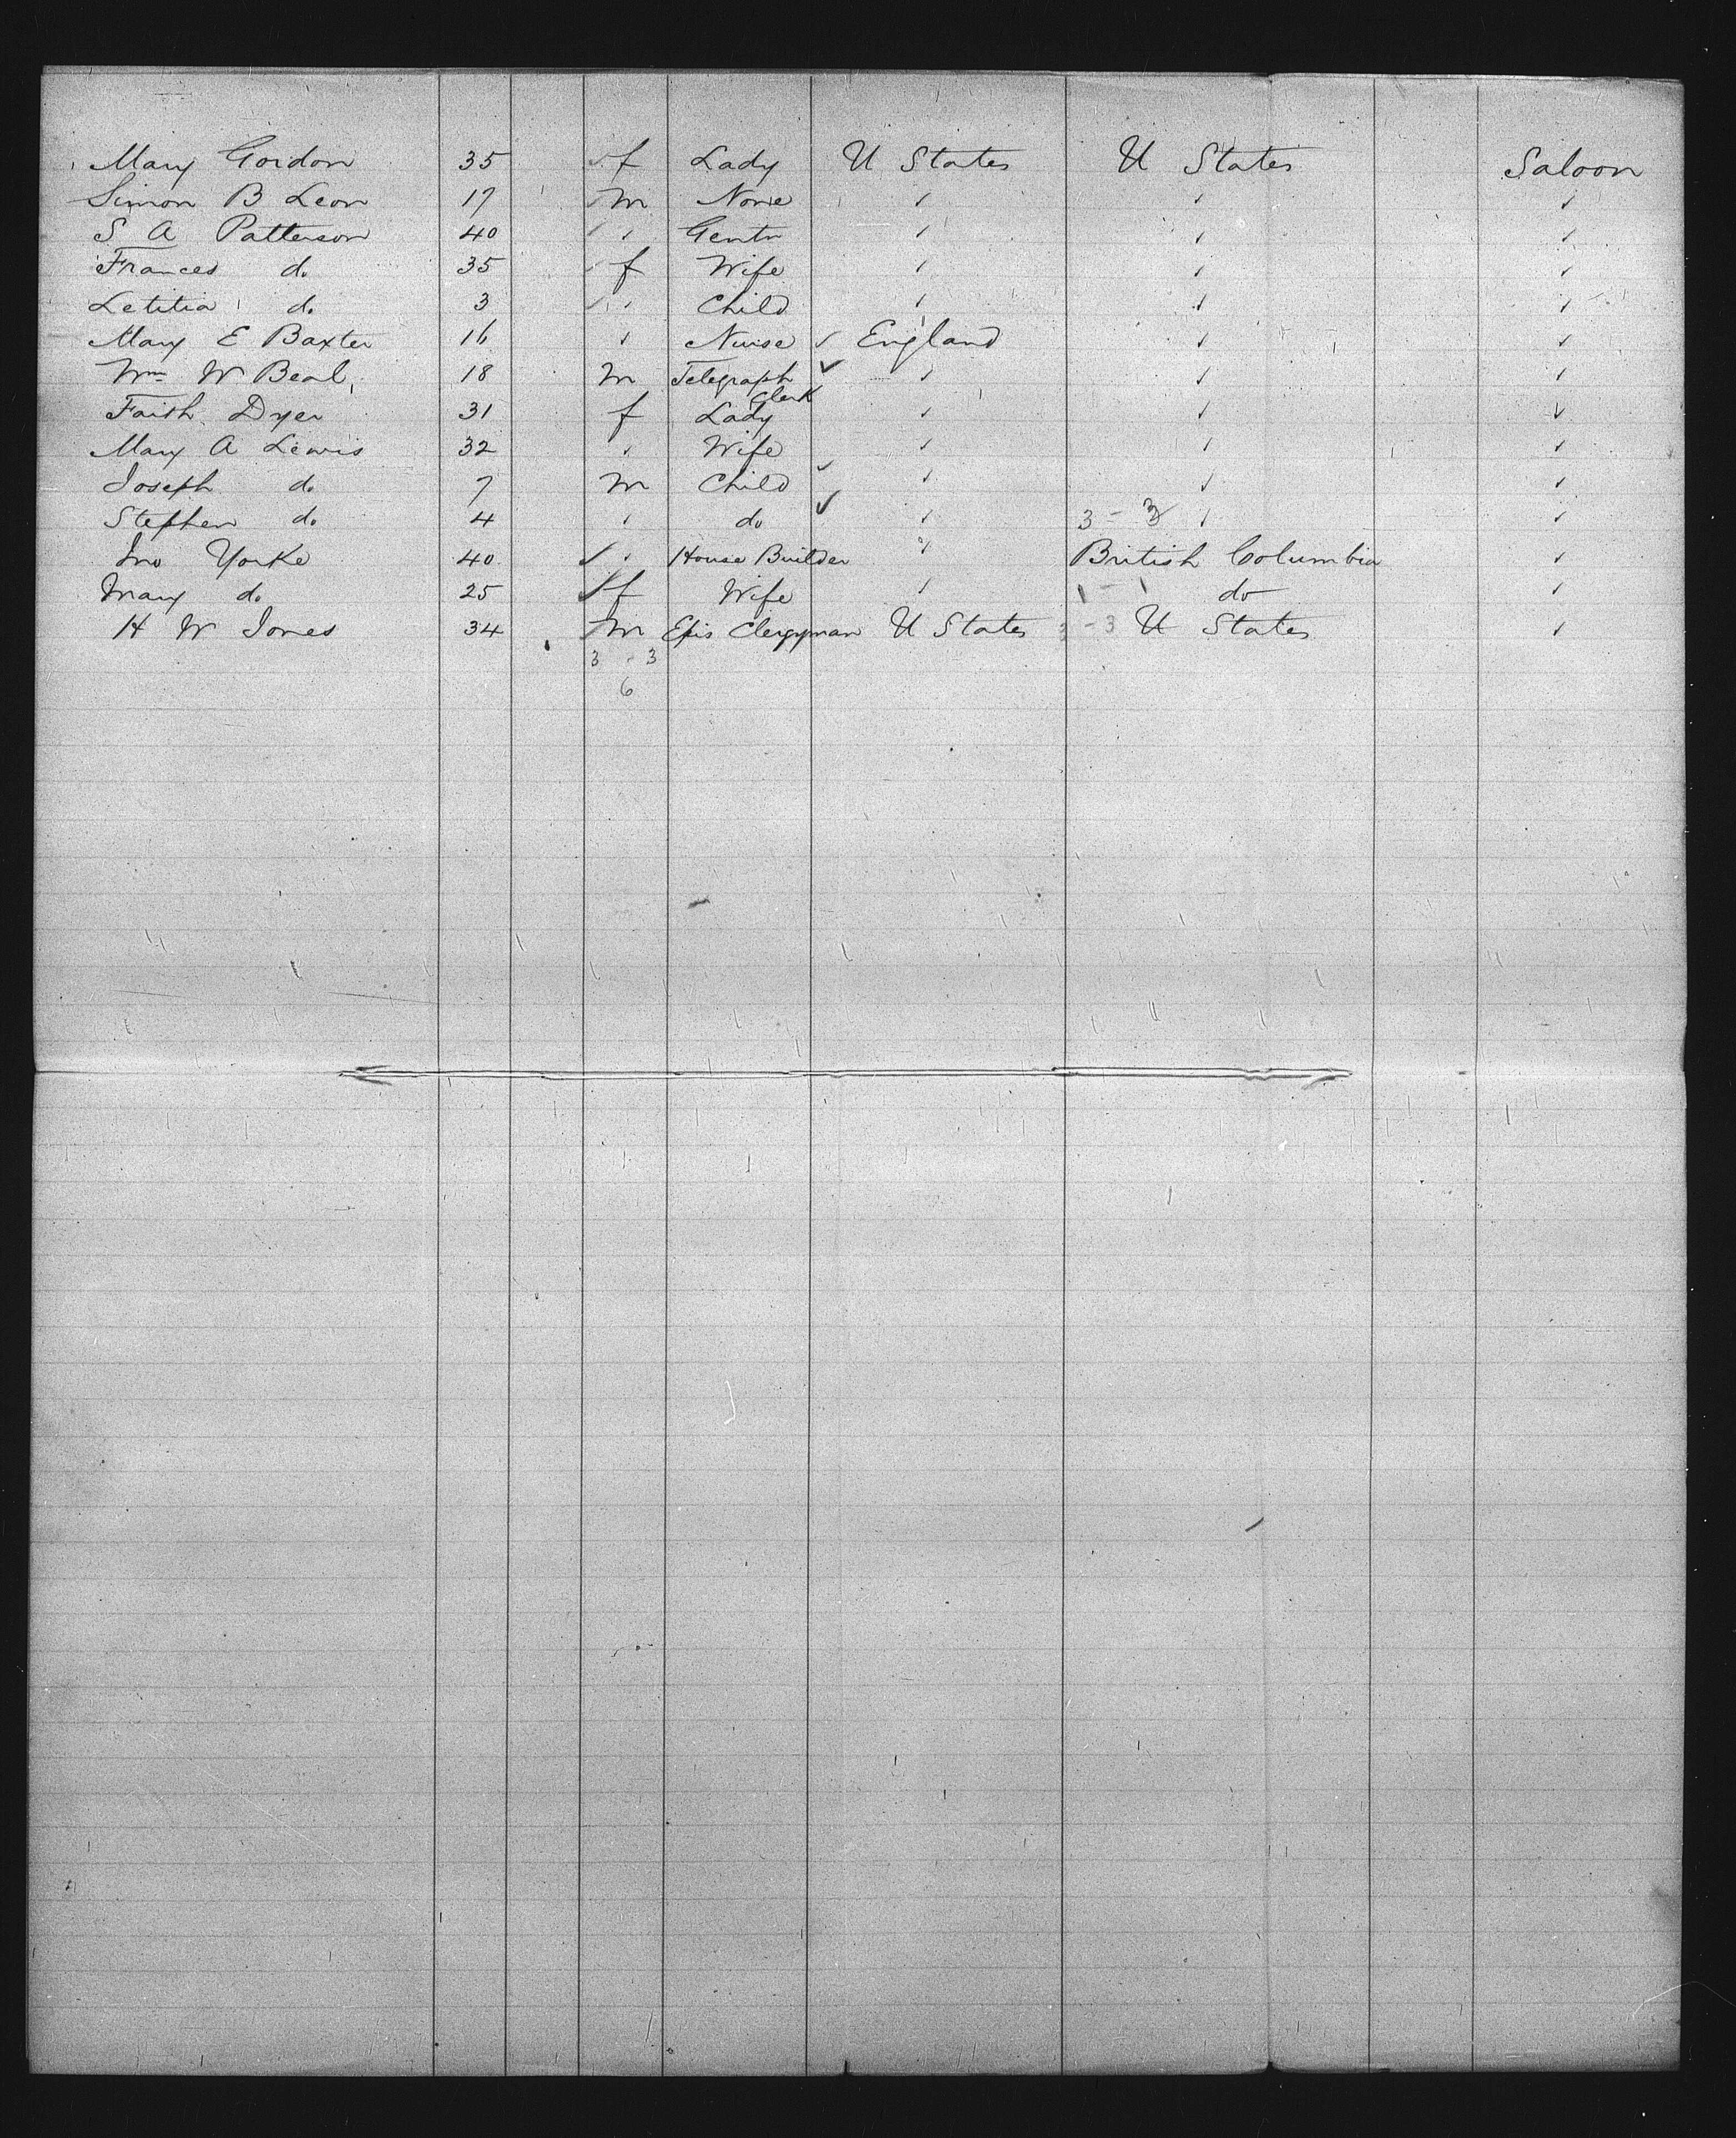 Mary Gordon 35 f Lady U States U States Saloon
Simon B Leon 17 m None
S A Patterson 40 Gentn
Frances do 35 f Wife
Letitia do 3 Child
Mary E Baxter 16 Nurse England
Wm W Beal 18 m Telegraph
Clerk
Faith Dyer 31 f Lady
Mary A Lewis 32 Wife
Joseph do 7 m Child
Stephen do 4 do 3 - 3
Jno Yorke 40 House Builder British Columbia
Mary do 25 f Wife 1 - 1 do
H W Jones 34 m Epis Clergyman U States 3 - 3 U States
3 - 3
6